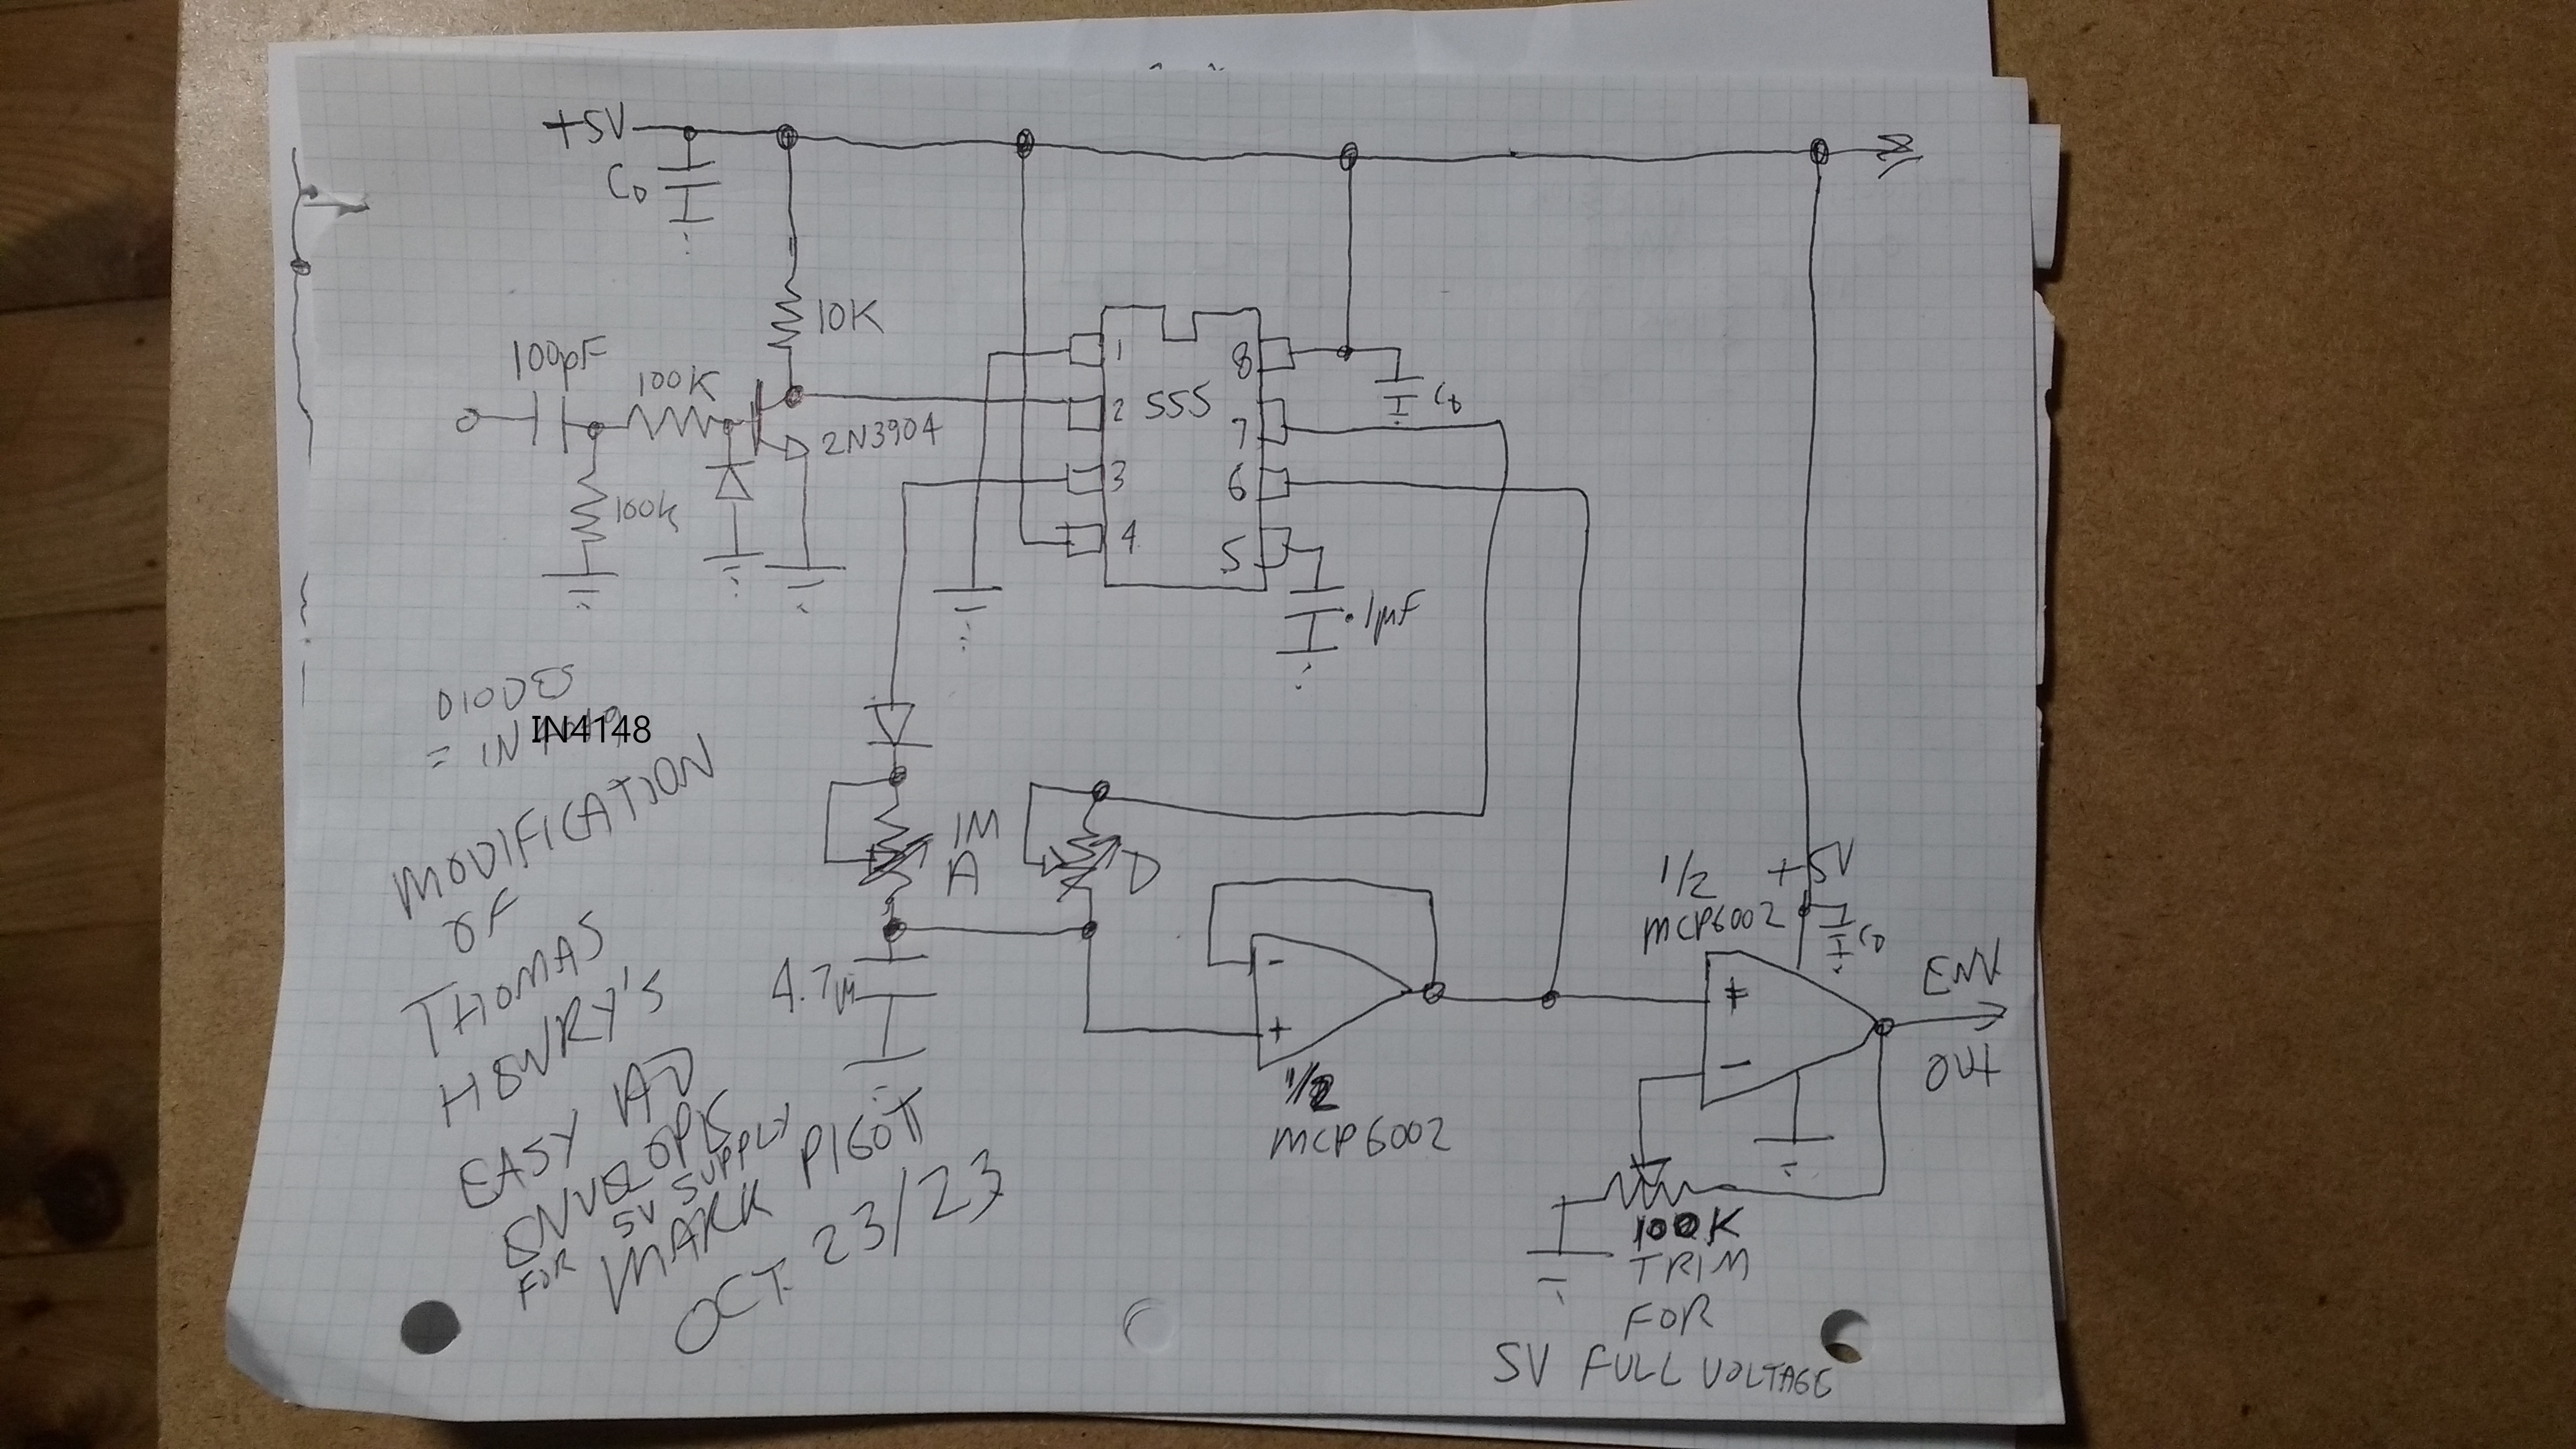 +5V
CD
10K
100pF
100K
100K
2N3904
1
2
3
4
555
8
7
6
5
CD
.1µF
DIODES
= IN4148
1M
A
D
4.7µ
-
+
1/2
MCP6002
1/2
MCP6002
+5V
CD
+
-
ENV
OUT
100K
TRIM
FOR
5V FULL VOLTAGE
MODIFICATION
OF
THOMAS
HENRY'S
EASY AD
ENVELOPE
FOR 5V SUPPLY
MARK PIGOTT
OCT. 23/23